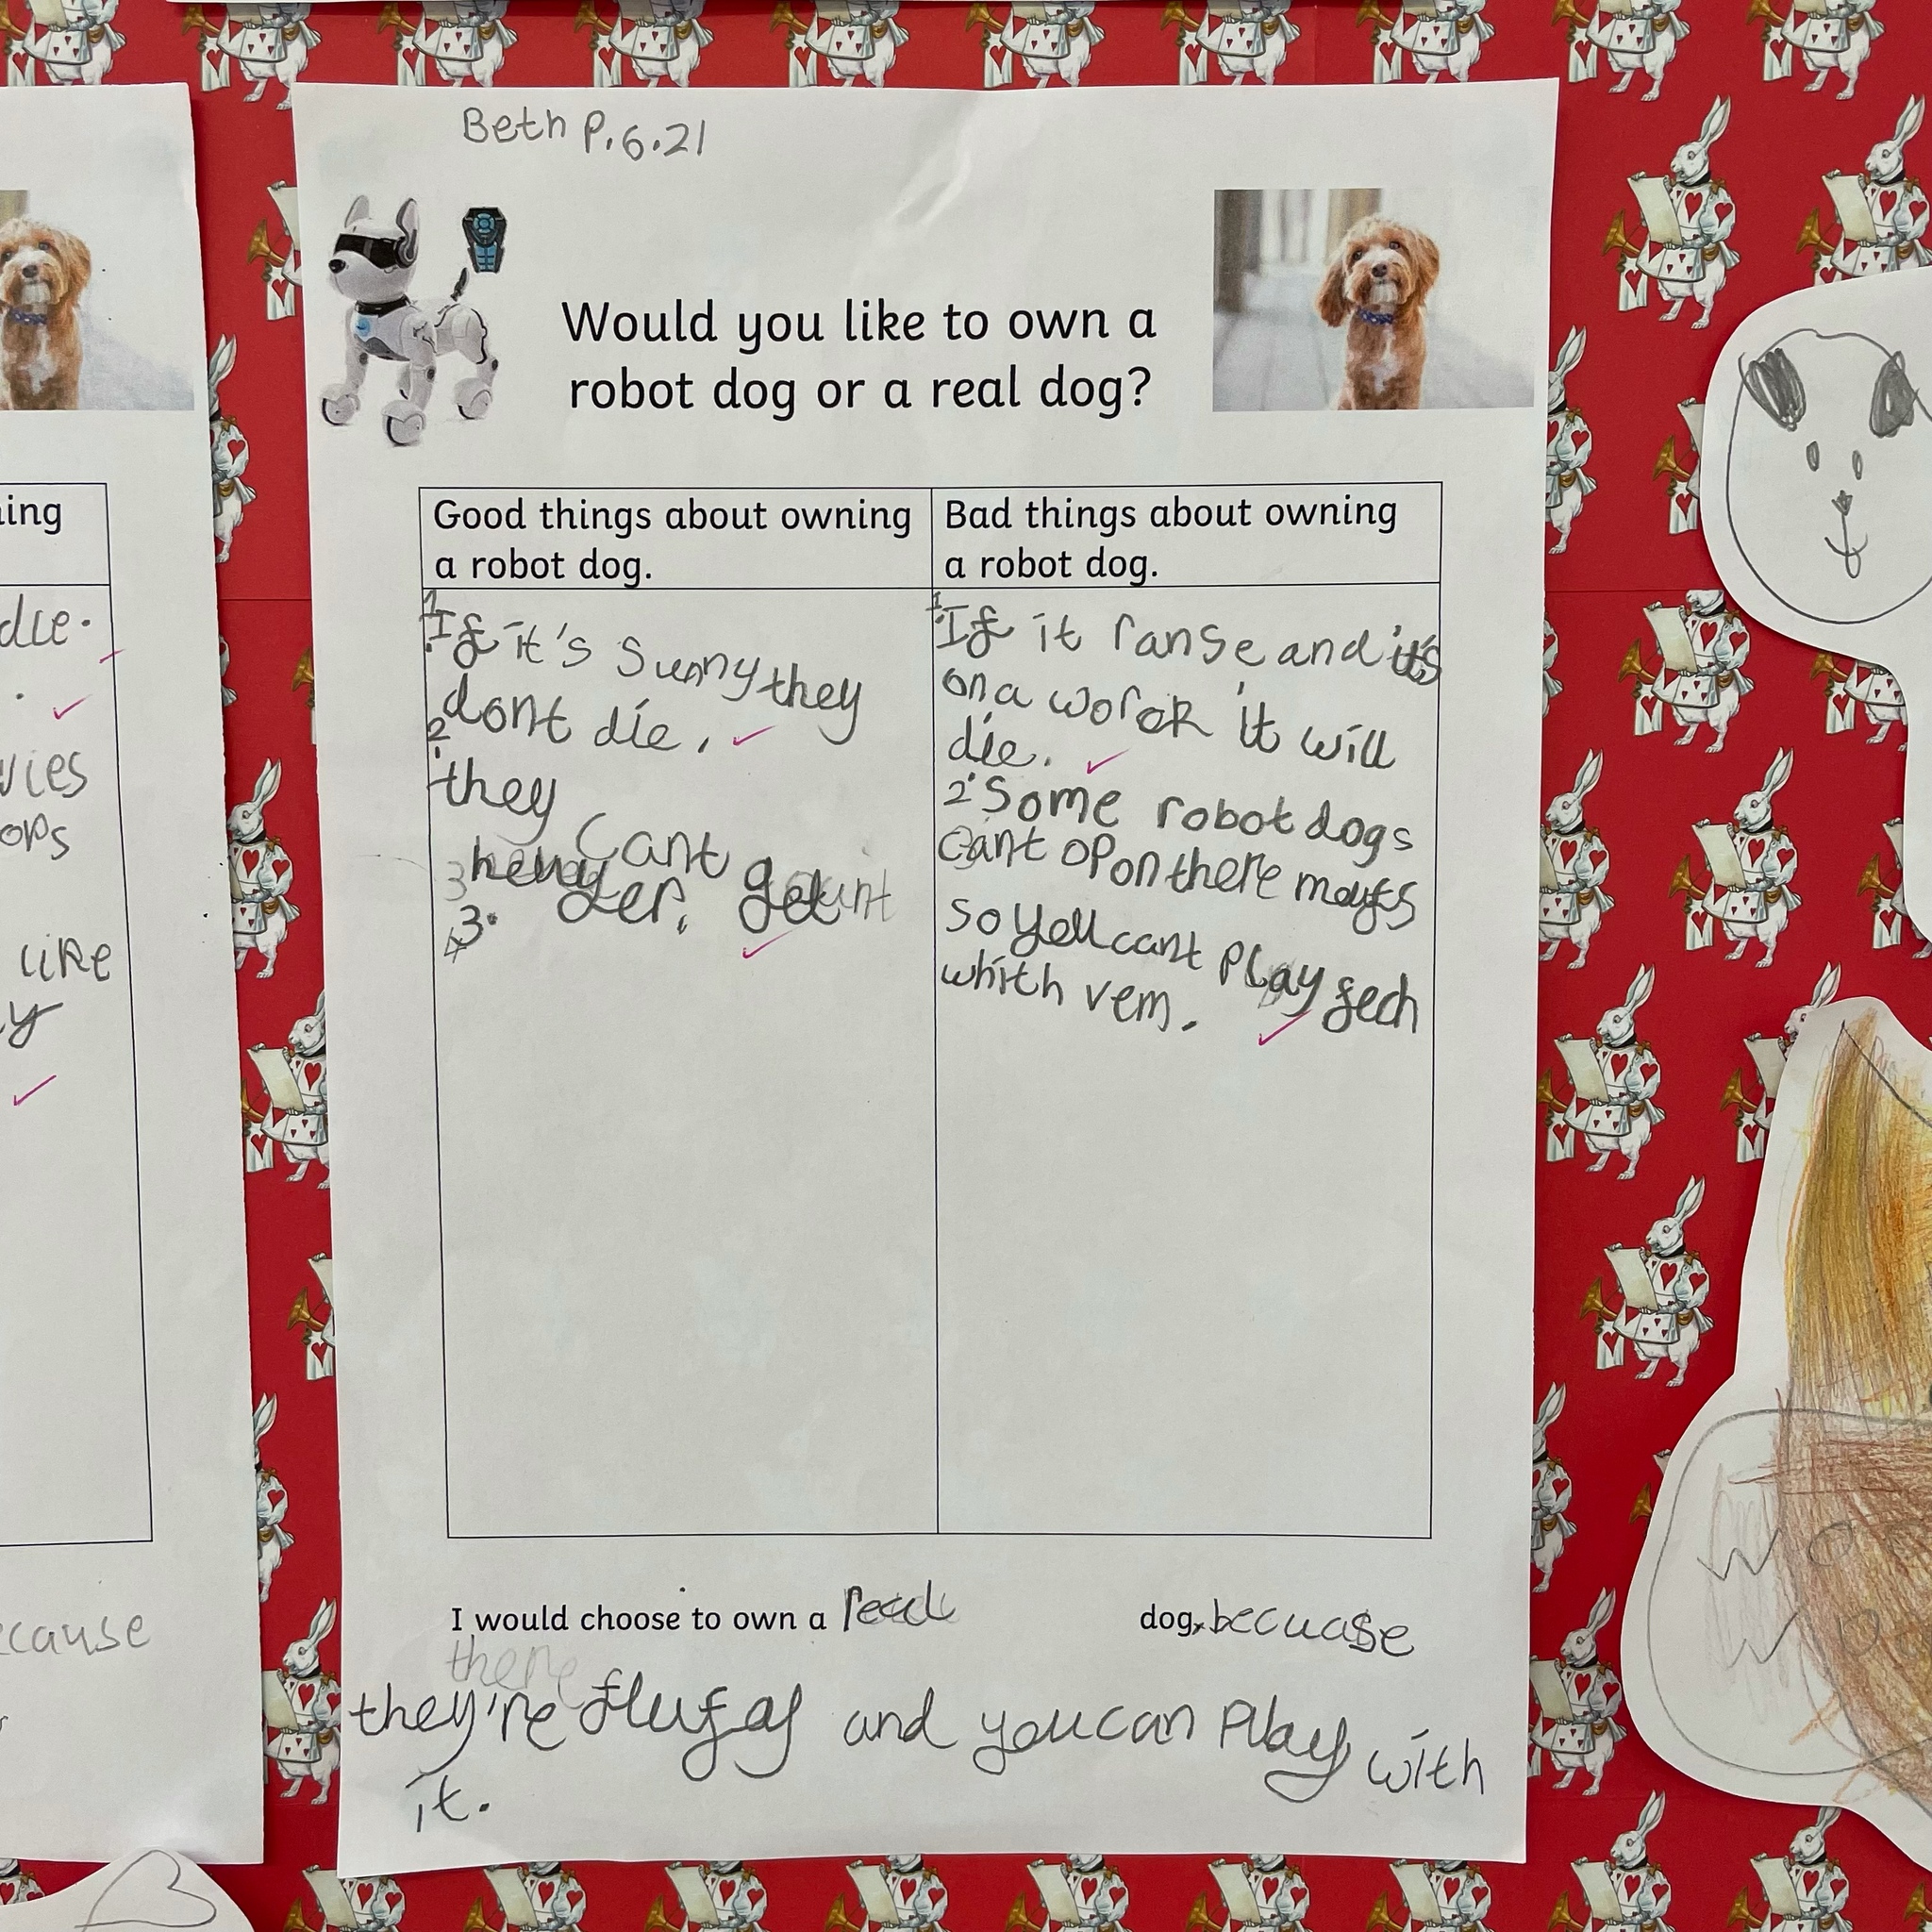 Beth P.6.21
Would you like to own a
robot dog or a real dog?
Good things about owning
a robot dog.
1. If it's sunny they
dont die.
2. they
cant get
hunger.
3.
4
Bad things about owning
a robot dog.
1. If it ranse and it's
on a worck it will
die.
2. Some robot dogs
cant opon there
so you cant play fech
whith vem.
I would choose to own a real dog. becuase
they're flufay and you can Play with
it.
ning
die.
vies
ops
like
y
ecause
Woo
Woo